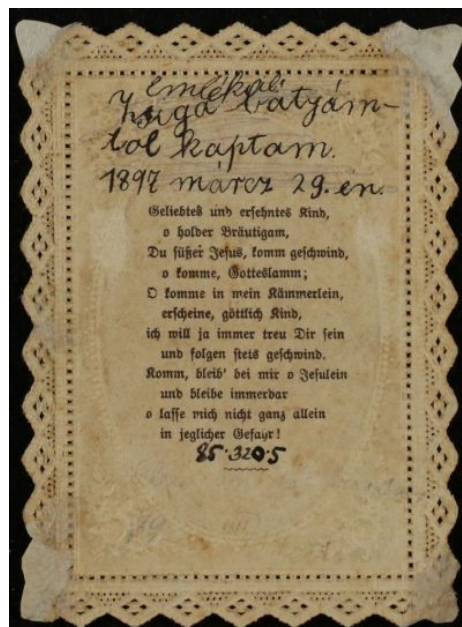 emlékül
Zsiga bátyám-
tól kaptam.
1897 márcz 29.én.
Geliebtes und ersehntes Kind,
o holder Bräutigam,
Du süßer Jesus, komm geschwind,
o komme, Gotteslamm;
O komme in mein Kämmerlein,
erscheine, göttlich Kind,
ich will ja immer treu Dir sein
und folgen stets geschwind.
Komm, bleib' bei mir o Jesulein
und bleibe immerdar
o lasse mich nicht ganz allein
in jeglicher Gefahr!
85.320.5